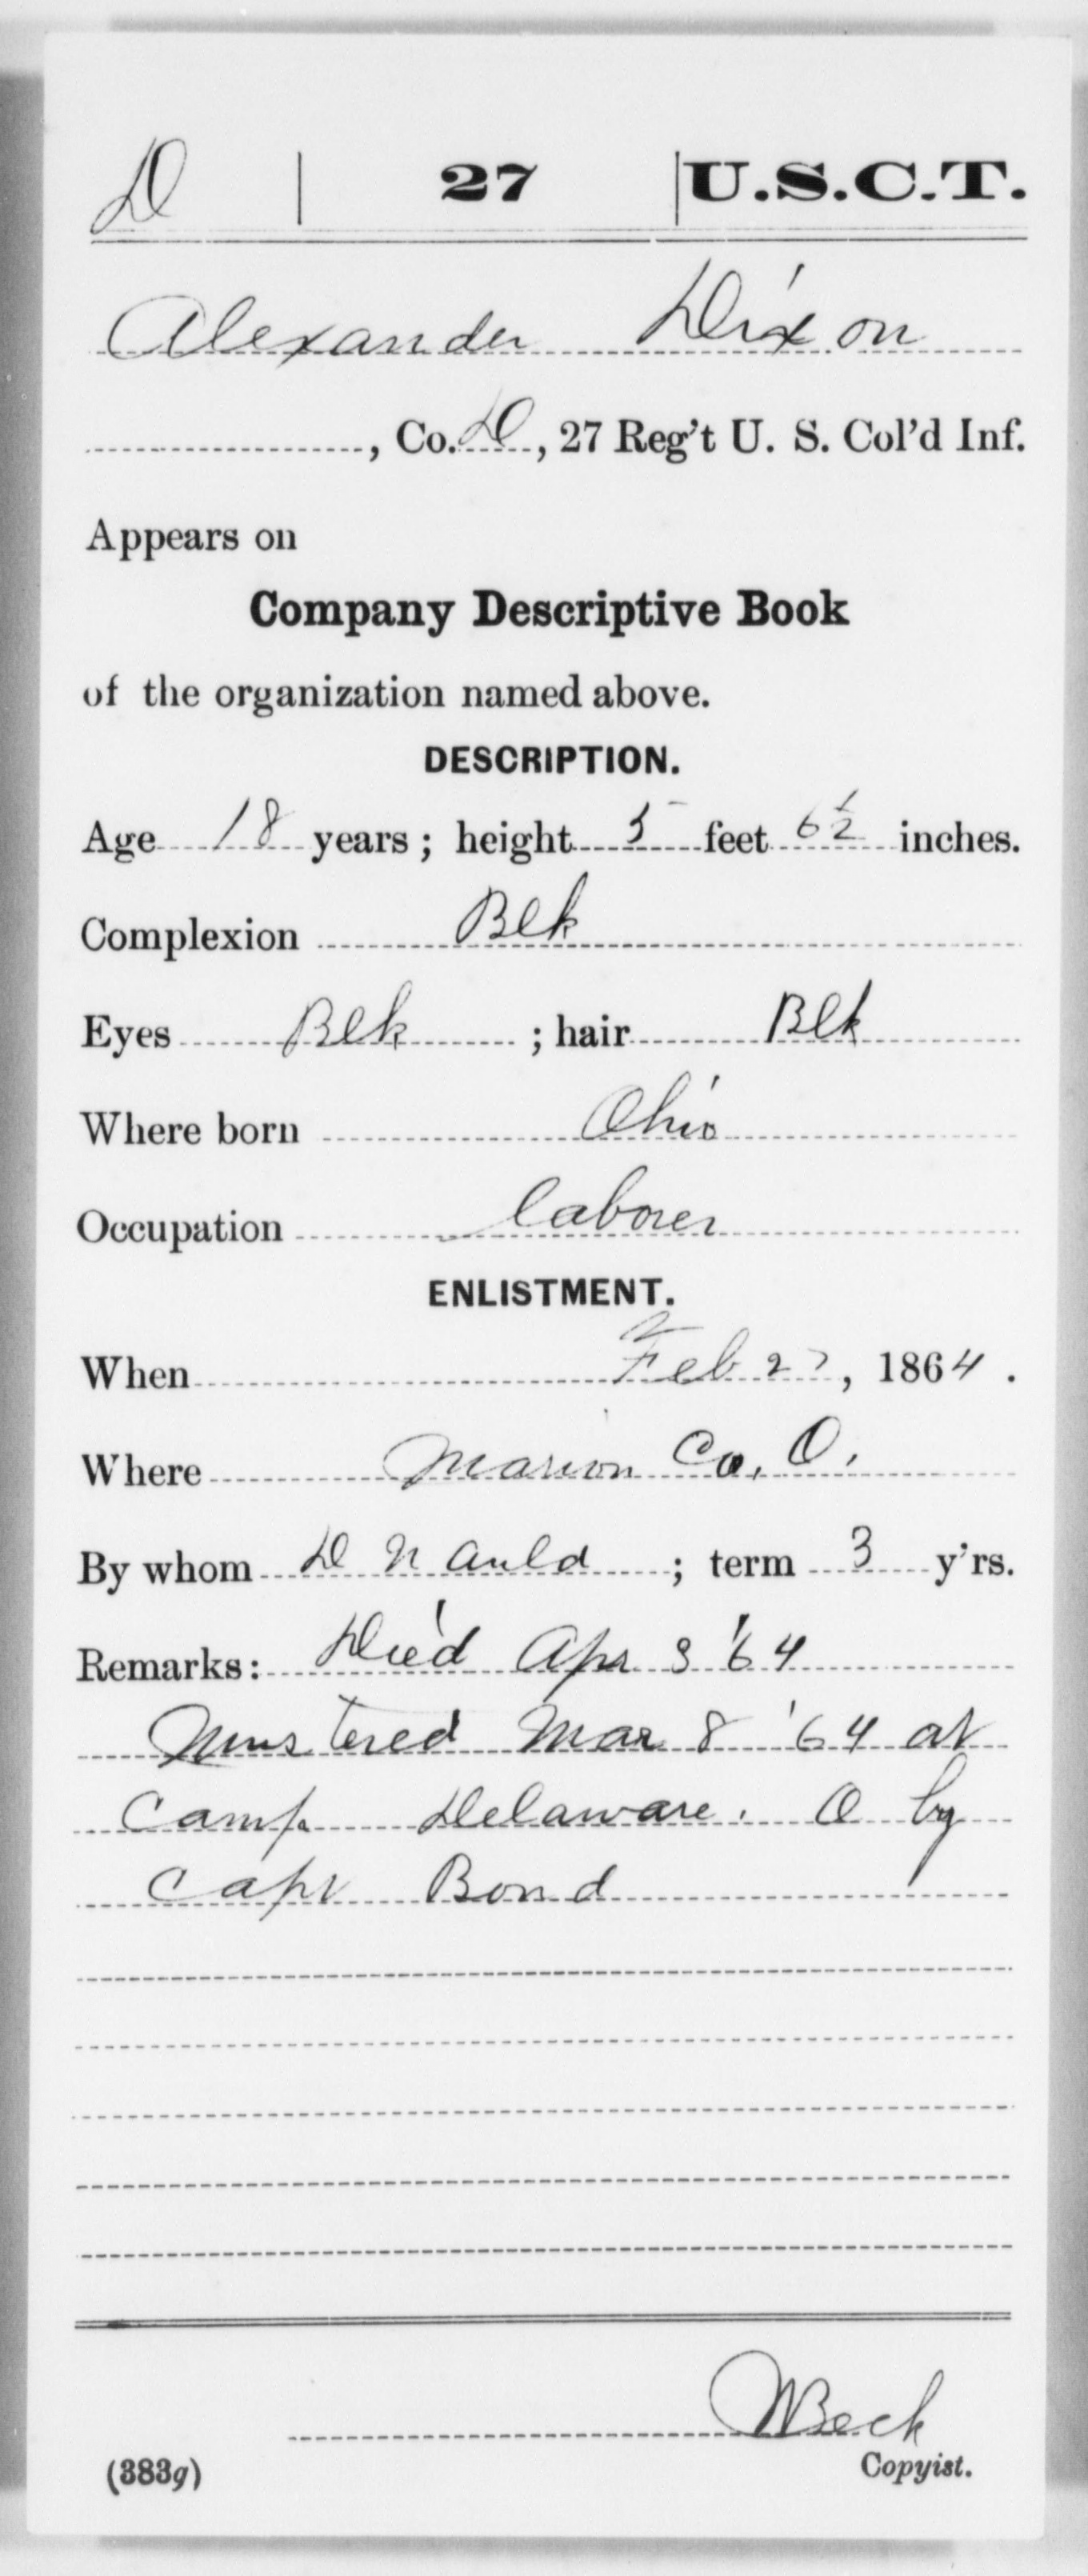 D | 27 | U.S.C.T.
Alexander Dixon
, Co. D, 27 Reg't U. S. Col'd Inf.
Appears on
Company Descriptive Book
of the organization named above.
DESCRIPTION.
Age 18 years; height 5 feet 6½ inches.
Complexion Blk
Eyes Blk ; hair Blk
Where born Ohio
Occupation laborer
ENLISTMENT.
When Feb 27, 1864.
Where Marion Co. O.
By whom D N Auld ; term 3 y'rs.
Remarks: Died Apr 3 '64
Mustered Mar 8 '64 at
Camp Delaware. O by
Capt Bond
Beck
(383g) Copyist.